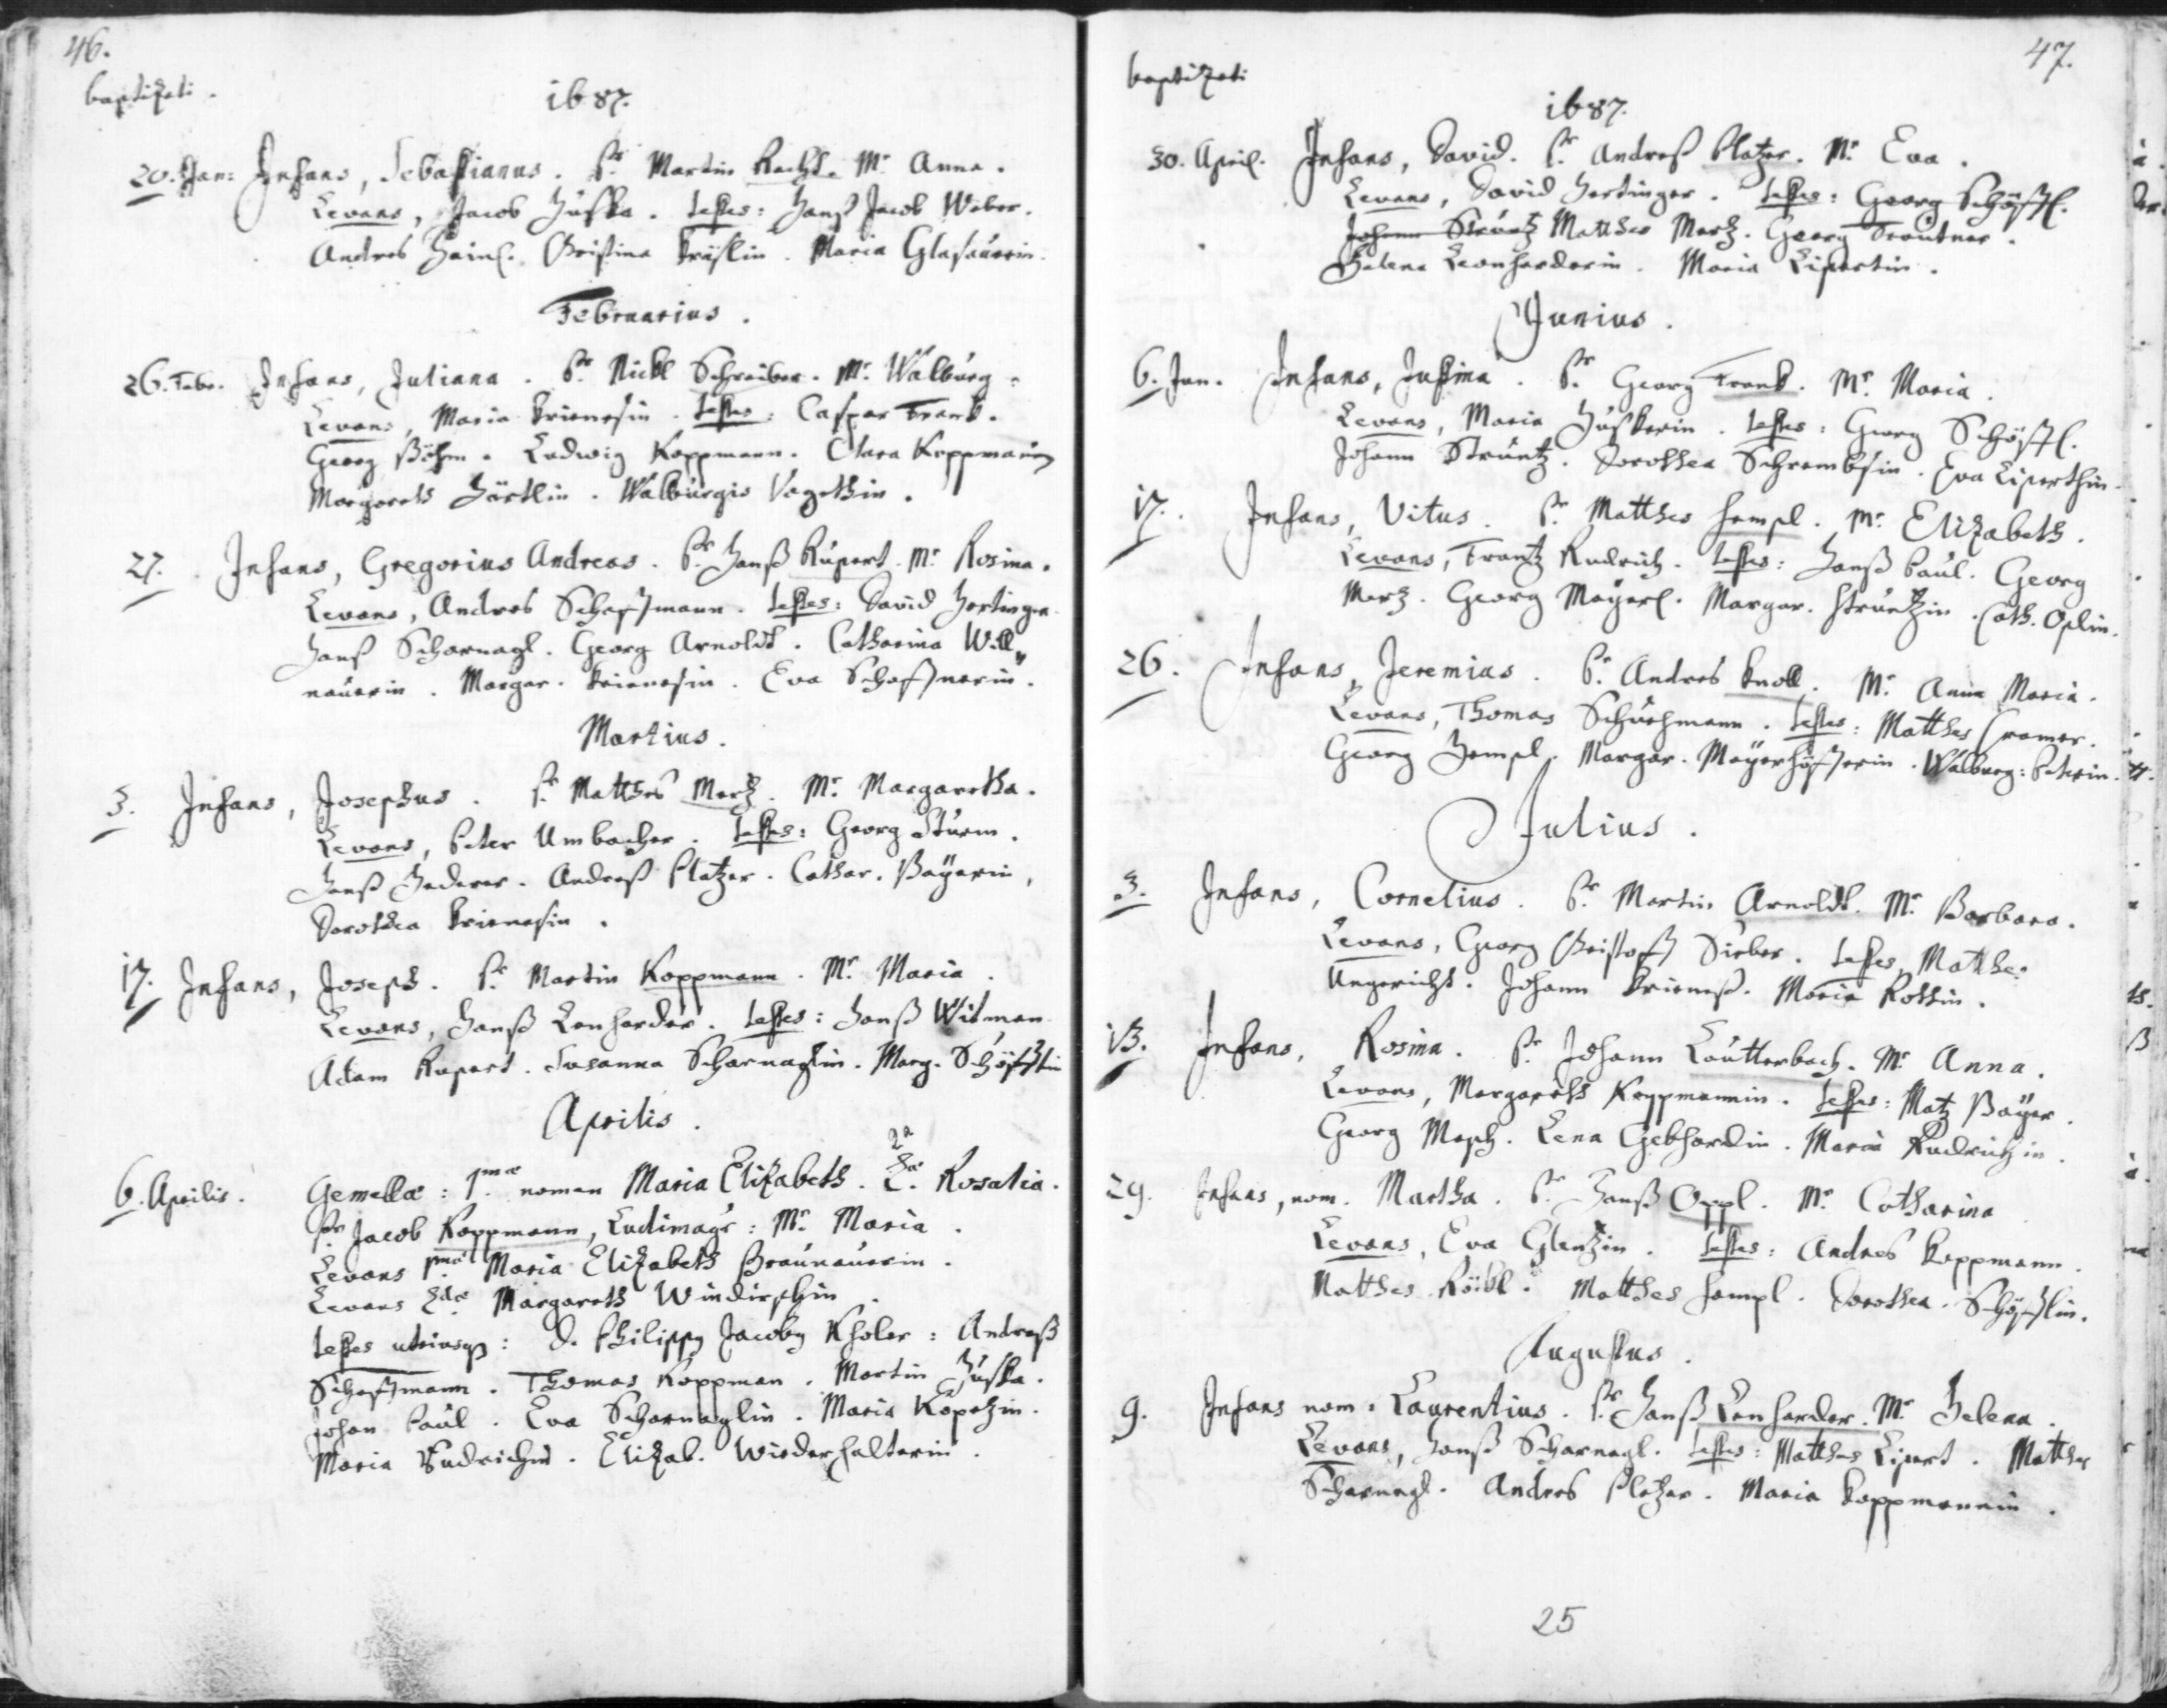 46.
baptizati.
1687.
20. Jan: Infans, Sebastianus. Pr. Martin Racht. Mr. Anna.
Levans, Jacob Huska. testes: Hanß Jacob Weber.
Andres Hainl. Christina Kräslin. Maria Glasauerin.
Februarius.
26. Febr. Infans, Juliana. Pr. Nickl Schreiber. Mr. Walburg:
Levans, Maria Krienesin. testes: Caspar Frank.
Georg Böhm. Ludwig Koppmann. Clara Koppmanin
Margareth Härtlin. Walburgis Vogethin.
27. Infans, Gregorius Andreas. Pr. Hanß Rupert. Mr. Rosina.
Levans, Andres Schaffmann. testes: David Hertinger.
Hanß Scharnagl. Georg Arnoldt. Catharina Will„
nauerin. Margar. Krienesin. Eva Schaffnerin.
Martius.
3. Infans, Josephus. Pr. Matthes Mertz. Mr. Margaretha.
Levans, Peter Umbacher. testes: Georg Sturm.
Hanß Hederer. Andreß Platzer. Cathar. Bayerin,
Dorothea Krienesin.
17. Infans, Joseph. Pr. Martin Koppmann. Mr. Maria.
Levans, Hanß Lenharder. testes: Hanß Witman.
Adam Rupert. Susanna Scharnaglin. Marg. Schöpfflin
Aprilis.
2a
6. Aprilis. Gemellæ: 1mæ nomen Maria Elizabeth. 2æ Rosalia.
Pr. Jacob Koppmann, Ludimagr: Mr. Maria.
Levans 1mæ Maria Elizabeth Braunauerin.
Levans 2dæ Margareth Windirschin.
testes utriusq: D. Philippg Jacobg Kholer: Andreß
Schaffmann. Thomas Koppman. Martin Huska.
Johan Paul. Eva Scharnaglin. Maria Kopetzin.
Maria Rudrichin. Elizab. Wiederhalterin.
47.
baptizati
1687.
30. April. Infans, David. Pr. Andreß Platzer. Mr. Eva.
Levans, David Hertinger. testes: Georg Schöpffl.
Johann Struntz Matthes Mertz. Georg Trautner.
Helena Leonharderin. Maria Lipertin.
Junius.
6. Jun. Infans, Justina. Pr. Georg Frank. Mr. Maria.
Levans, Maria Huskerin. testes: Georg Schöpffl.
Johann Struntz. Dorothea Schrembsin. Eva Liperthin.
17. Infans, Vitus. Pr. Matthes Hempl. Mr. Elizabeth.
Levans, Frantz Rudrich. testes: Hanß Paul. Georg
Mertz. Georg Mayerl. Margar. Struntzin. Cath. Oplin.
26. Infans, Jeremias. Pr. Andres Knoll. Mr. Anna Maria.
Levans, Thomas Schuchmann. testes: Matthes Cramer.
Georg Hempl. Margar. Mayerhöfferin. Walburg: Peterin.
Julius.
3. Infans, Cornelius. Pr. Martin Arnoldt. Mr. Barbara.
Levans, Georg Christoff Sieber. testes, Matthes
Ungericht. Johann Krieneß. Maria Rothin.
13. Infans, Rosina. Pr. Johann Lautterbach. Mr. Anna.
Levans, Margareth Koppmannin. testes: Matz Bayer.
Georg Mesch. Lena Gebhardin. Maria Rudrichin.
29. Infans, nom. Martha. Pr. Hanß Oppl. Mr. Catharina
Levans, Eva Glentzin. testes: Andres Koppmann.
Matthes Röibl. Matthes Hempl. Dorothea Schöpfflin.
Augustus.
9. Infans nom: Laurentius. Pr. Hanß Lenharder. Mr. Helena.
Levans, Hanß Scharnagl. testes: Matthes Lipert. Matthes
Scharnagl. Andres Platzer. Maria Koppmannin.
25